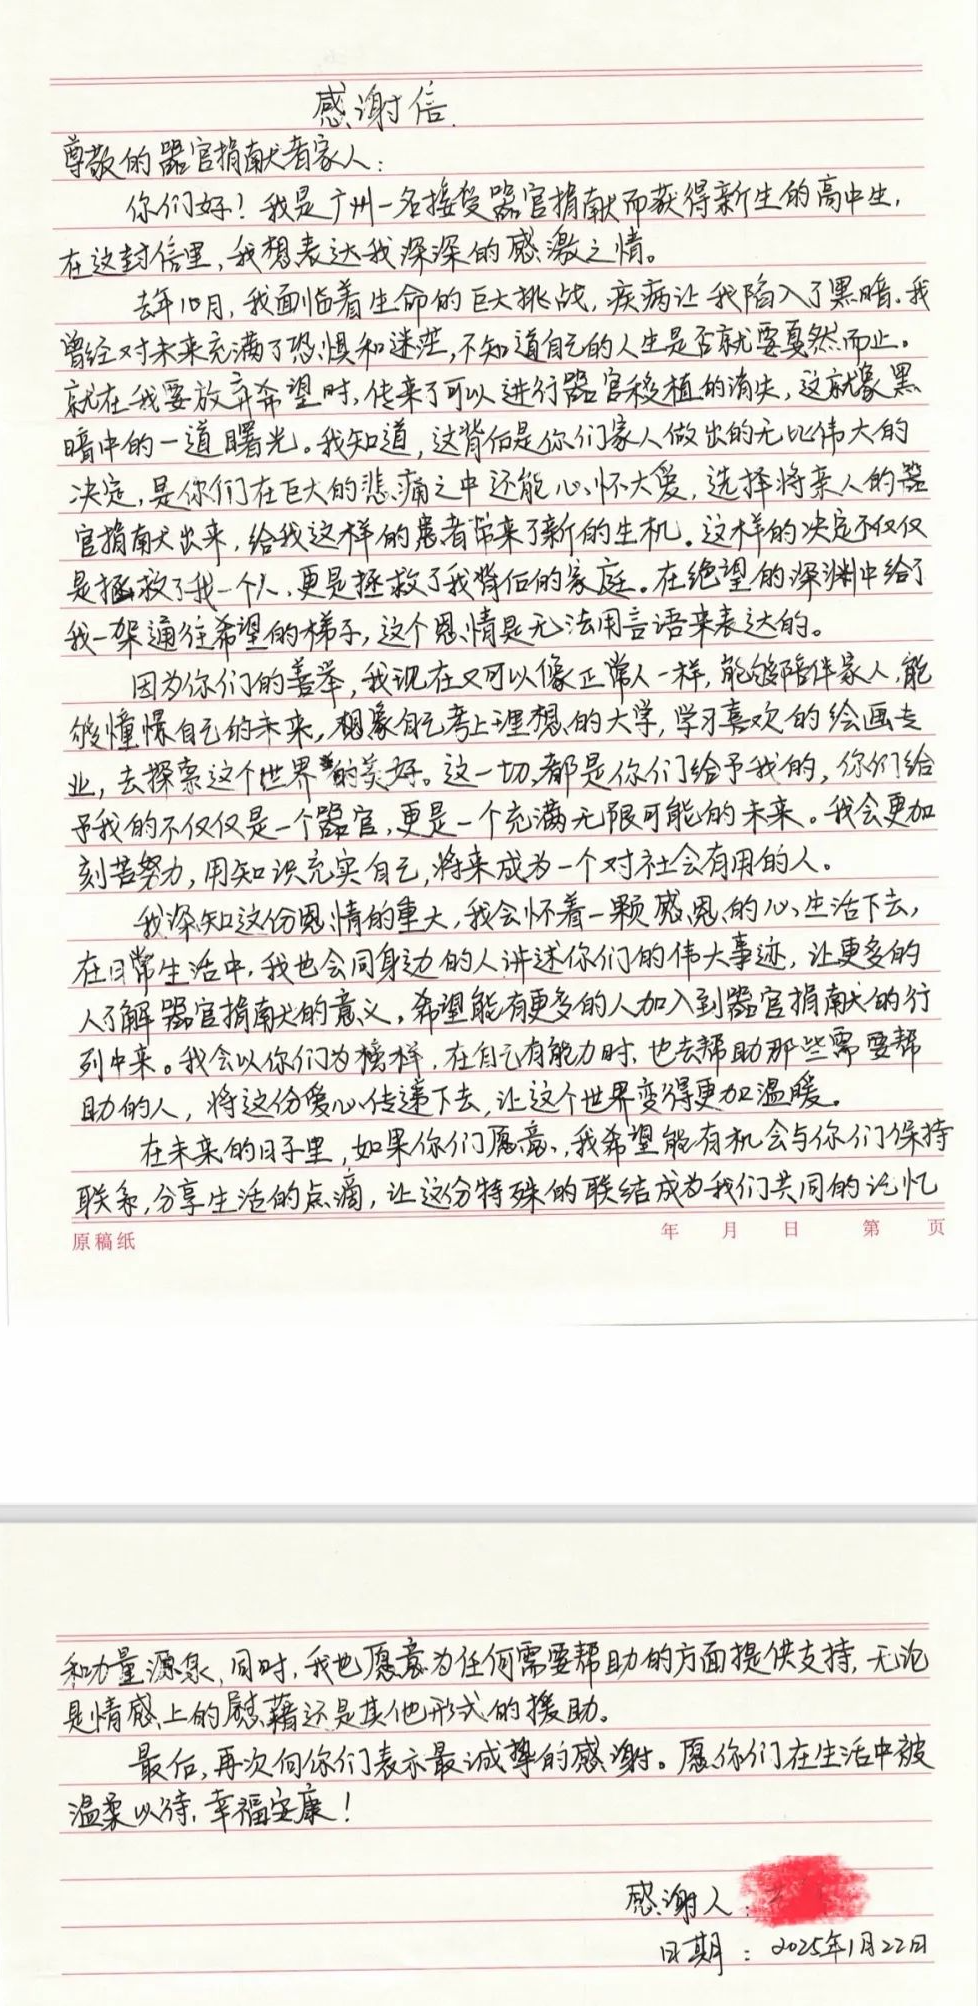 感谢信.
尊敬的器官捐献者家人：
你们好！我是广州一名接受器官捐献而获得新生的高中生，
在这封信里，我想表达我深深的感激之情。
去年10月，我面临着生命的巨大挑战，疾病让我陷入了黑暗.我
曾经对未来充满了恐惧和迷茫，不知道自己的人生是否就要戛然而止。
就在我要放弃希望时，传来了可以进行器官移植的消失，这就象黑
暗中的一道曙光。我知道，这背后是你们家人做出的无比伟大的
决定，是你们在巨大的悲痛之中还能心怀大爱，选择将亲人的器
官捐献出来，给我这样的患者带来了新的生机。这样的决定不仅仅
是拯救了我一个人，更是拯救了我背后的家庭。在绝望的深渊中给了
我一架通往希望的梯子，这个恩情是无法用言语来表达的。
因为你们的善举，我现在又可以像正常人一样，能够陪伴家人，能
够憧憬自己的未来，想象自己考上理想的大学，学习喜欢的绘画专
业，去探索这个世界的美好。这一切，都是你们给予我的，你们给
予我的不仅仅是一个器官，更是一个充满无限可能的未来。我会更加
刻苦努力，用知识充实自己，将来成为一个对社会有用的人。
我深知这份恩情的重大，我会怀着一颗感恩的心、生活下去，
在日常生活中，我也会同身边的人讲述你们的伟大事迹，让更多的
人了解器官捐献的意义，希望能有更多的人加入到器官捐献的行
列中来。我会以你们为榜样，在自己有能力时，也去帮助那些需要帮
助的人，将这份爱心传递下去，让这个世界变得更加温暖。
在未来的日子里，如果你们愿意，我希望能有机会与你们保持
联系，分享生活的点滴，让这份特殊的联结成为我们共同的记忆
原稿纸 年 月 日 第 页
和力量源泉，同时，我也愿意为任何需要帮助的方面提供支持，无论
是情感上的慰藉还是其他形式的援助。
最后，再次向你们表示最诚挚的感谢。愿你们在生活中被
温柔以待，幸福安康！
感谢人：
日期：2025年1月22日